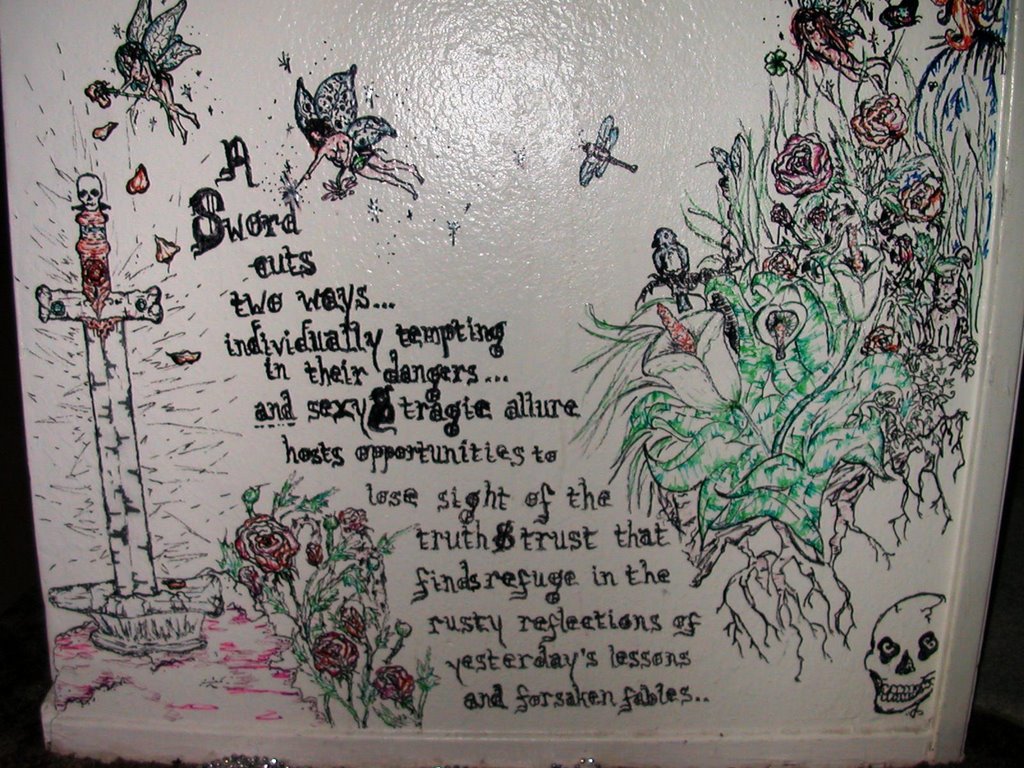 A
Sword
cuts
two ways...
individually tempting
in their dangers...
and sexy & tragic allure
hosts opportunities to
lose sight of the
truth & trust that
finds refuge in the
rusty reflections of
yesterday's lessons
and forsaken fables..